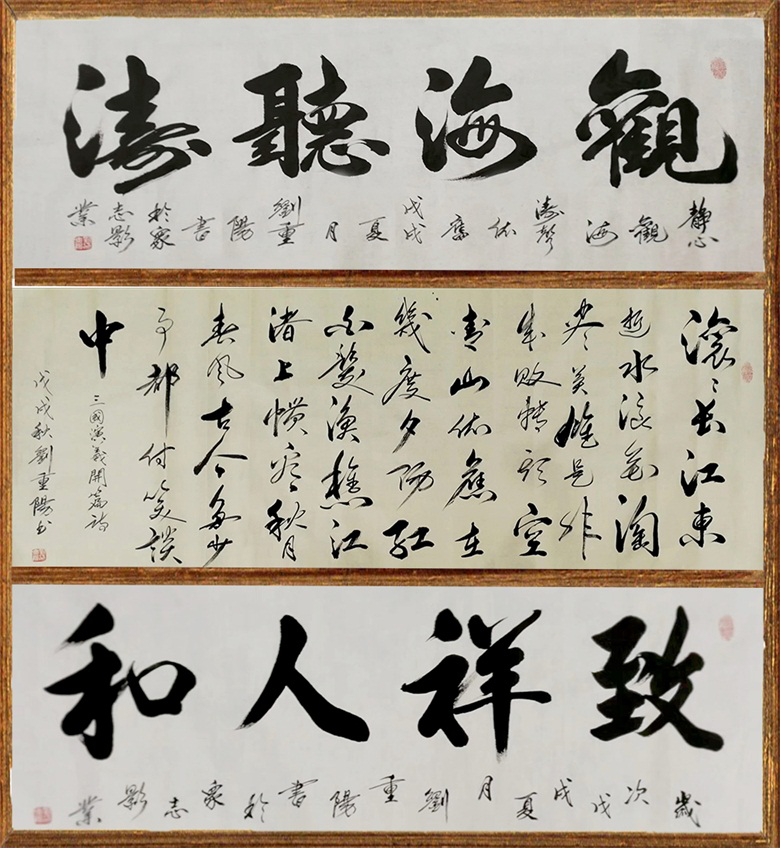 觀海聽濤
靜心觀海濤聲依舊戊戌夏月劉重陽書於志影業
滾〻長江東
逝水浪花淘
盡英雄是非
成敗轉頭空
青山依舊在
幾度夕陽紅
白髮漁樵江
渚上慣看秋月
春風古今多少
事都付笑談
中
三國演義開篇詩
戊戌秋劉重陽书
致祥人和
歲次戊戌夏月劉重陽書於志影業